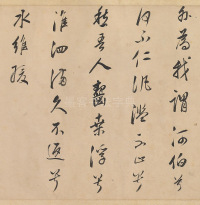 爲我謂河伯兮
何不仁泛濫不止兮
愁吾人齧桑浮兮
淮泗滿久不返兮
水維緩